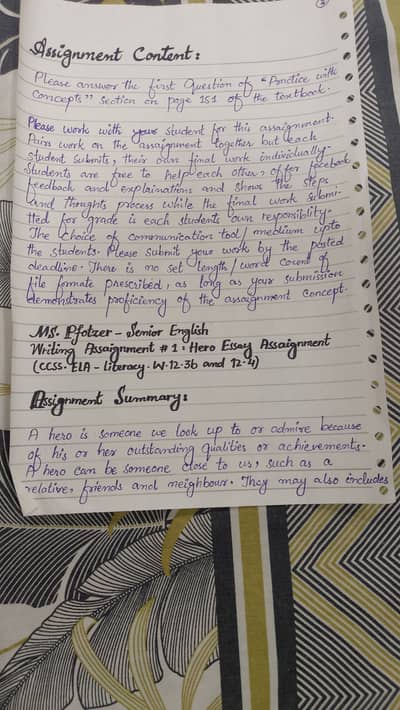 Assignment Content:
Please answer the first Question of "Practice with
Concepts" section on page 151 of the textbook.
Please work with your student for this assaignment.
Pairs work on the assaignment together but each
student submits, their own final work individually.
Students are free to help each other, offer facebook
feedback and explainations and shows the steps
and thoughts process while the final work submi-
tted for grade is each students own responsibility.
The choice of communication tool/medium upto
the students. Please submit your work by the posted
deadline. There is no set length/word count of
file formate prescribed, as long as your submission
demonstrates proficiency of the assaignment concept.
Ms. Pfotzer - Senior English
Writing Assaignment # 1: Hero Essay Assaignment
(CCSS. ELA - Literacy. W. 12-3b and 12-4)
Assignment Summary:
A hero is someone we look up to or admire because
of his or her outstanding qualities or achievements.
A hero can be someone close to us, such as a
relative, friends and neighbour. They may also includes